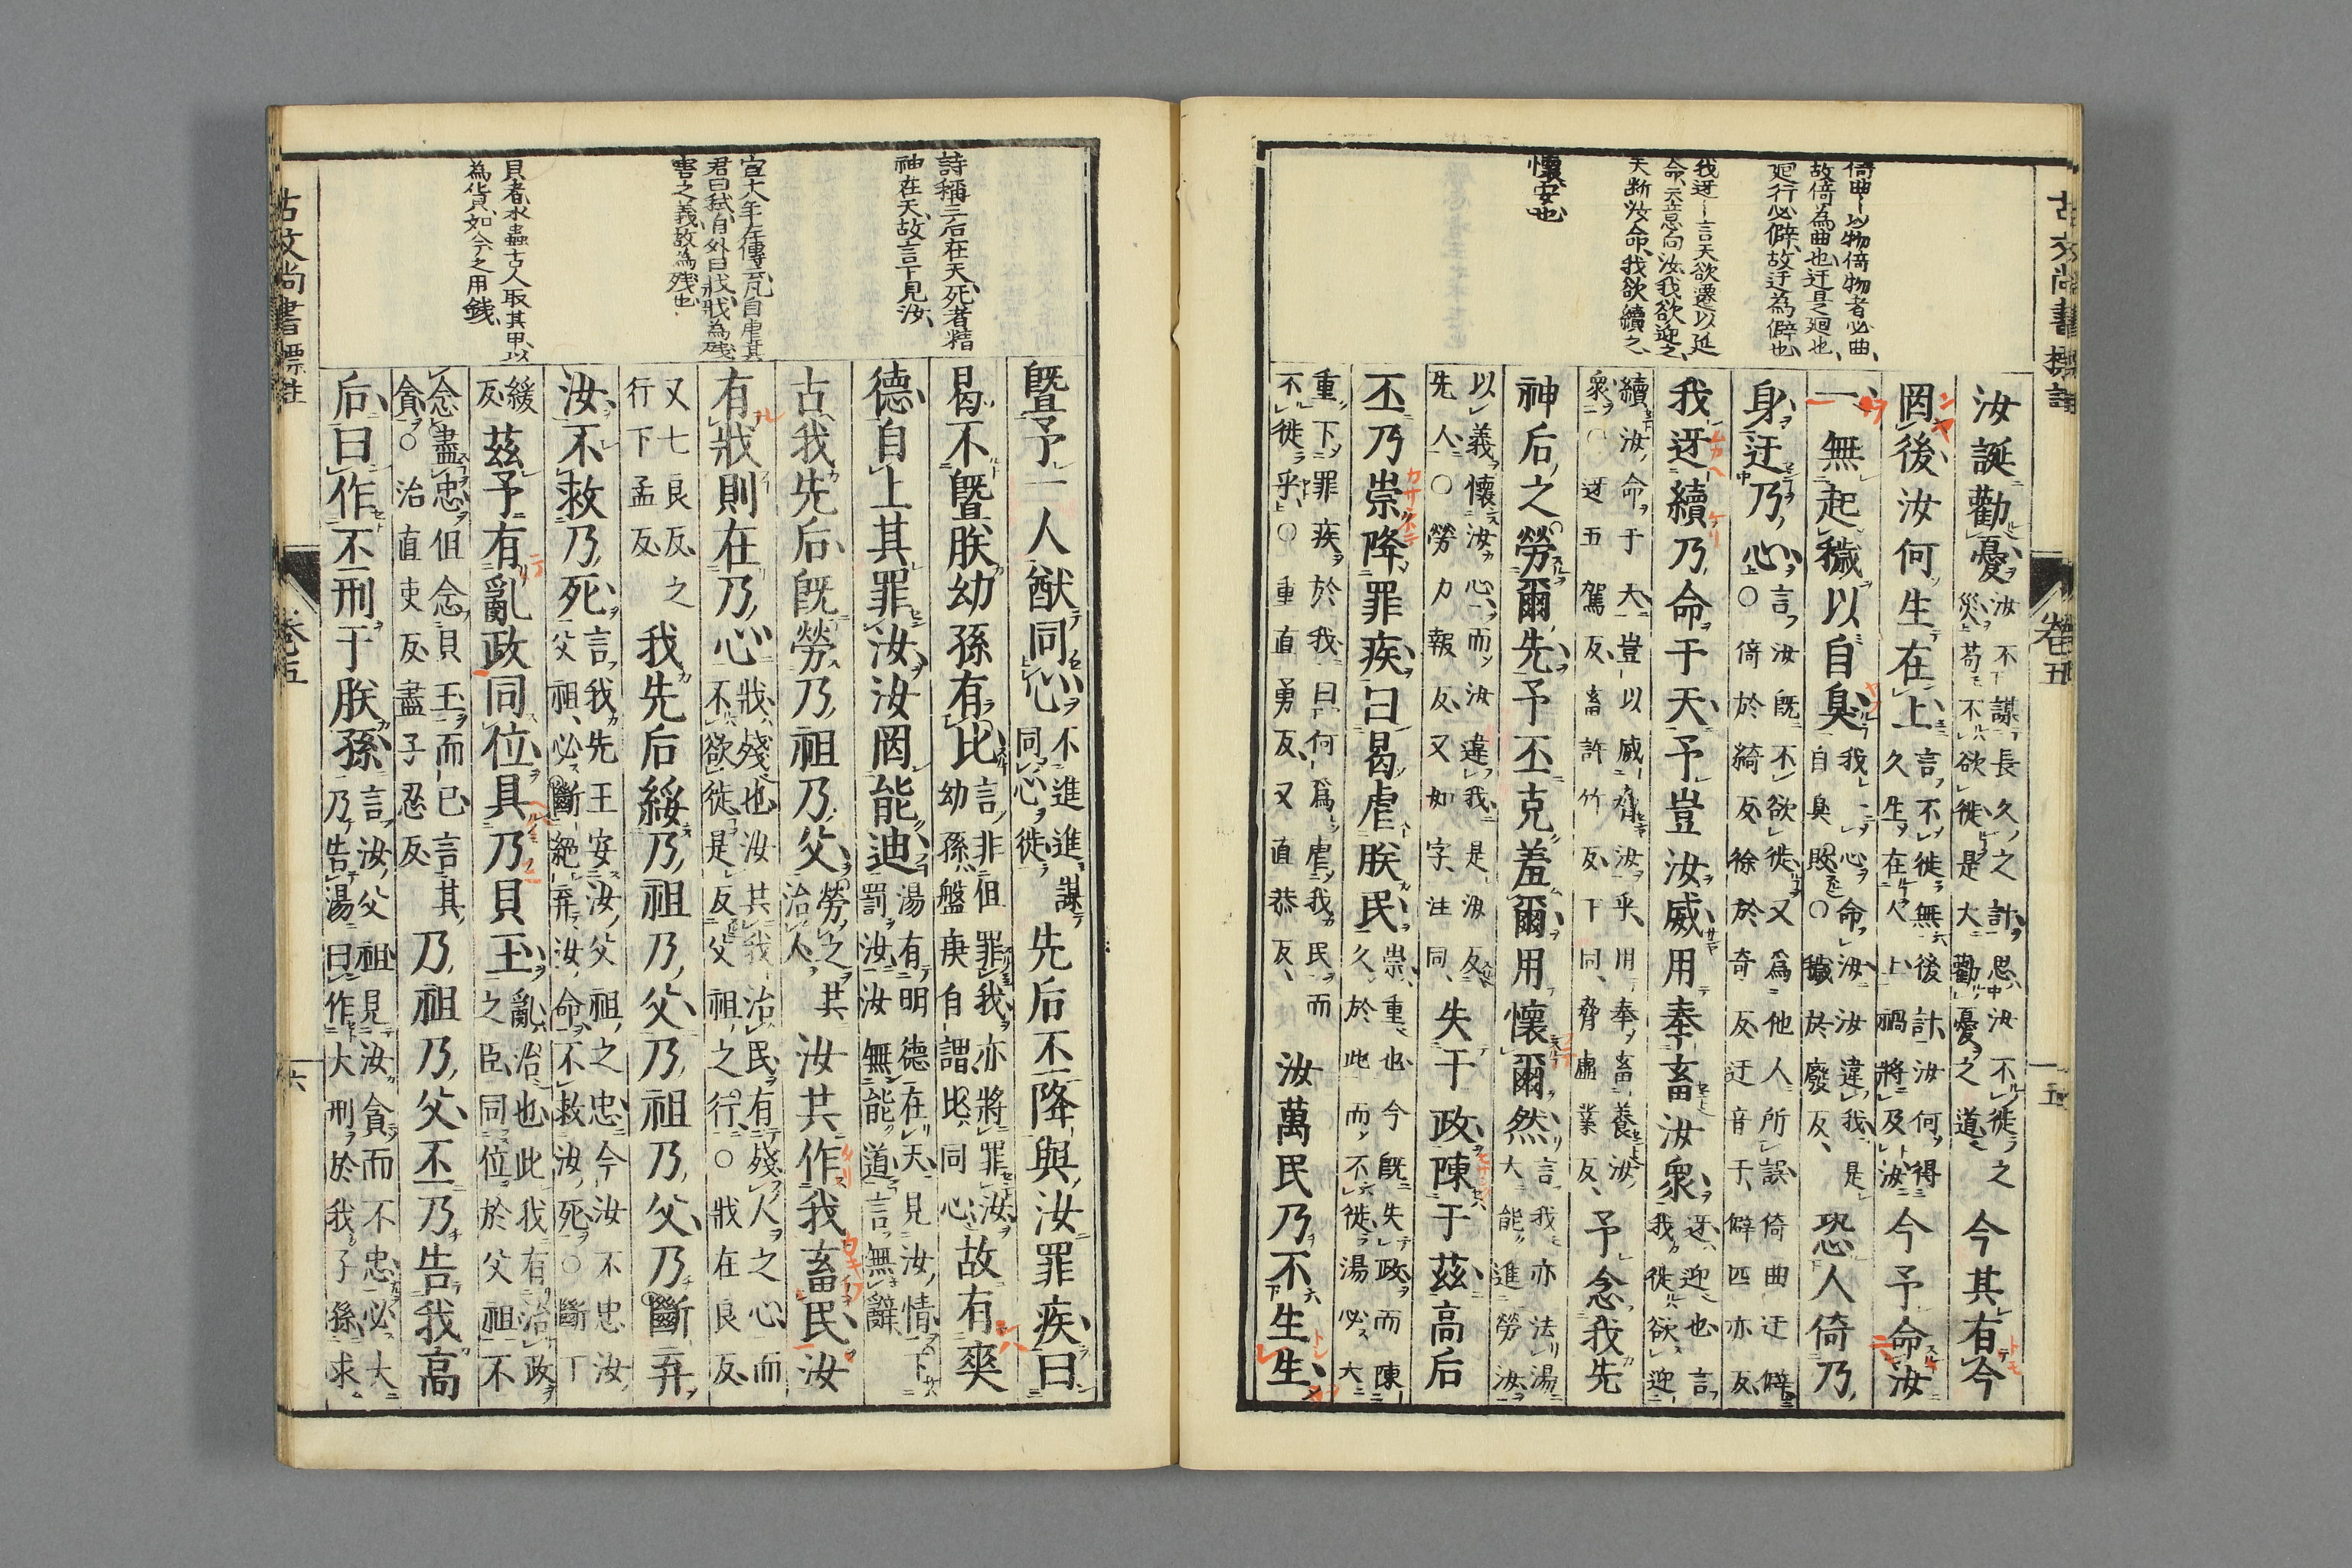 古文尚書標註
卷五
五
倚曲〻以物倚物者必曲
故倚為曲也迂是廻也
廻行必僻故迂為僻也
我迓〻言天欲遷以延
命天意向汝我欲迎之
天断汝命我欲續之
懷安也
汝誕勸憂汝不謀長久之計思汝不徙之災苟不欲徙是大勸憂之道今其有今
罔後汝何生在上言不徙無後計汝何得久生在人上禍將及汝今予命汝
一無起穢以自臭我一心命汝汝違我是自臭敗○穢於廢反恐人倚乃
身迂乃心言汝既不欲徙又爲他人所誤倚曲迂僻○倚於綺反徐於奇反迂音于僻匹亦反
我迓續乃命于天予豈汝威用奉畜汝衆迓迎也言我徙欲迎
續汝命于天豈以威脅汝乎用奉畜養汝衆○迓五駕反畜許竹反下同脅虛業反予念我先
神后之勞爾先予丕克羞爾用懷爾然言我亦法湯大能進勞汝
以義懷汝心而汝違我是汝反先人○勞力報反又如字注同失于政陳于茲高后
丕乃崇降罪疾曰曷虐朕民崇重也今既失政而陳久於此而不徙湯必大
重下罪疾於我曰何爲虐我民而不徙乎○重直勇反又直恭反汝萬民乃不生生
詩稱三后在天死者精
神在天故言下見汝
宣大年左傳云凡自虐其
君曰弑自外曰戕戕為殘
害之義故為殘也
貝者水蟲古人取其甲以
為貨如今之用錢
暨予一人猷同心不進進謀同心徙先后丕降與汝罪疾曰
曷不暨朕幼孫有比言非但罪我亦將罪汝幼孫盤庚自謂比同心故有爽
德自上其罰汝汝罔能迪湯有明德在天見汝情下罰汝汝無能道言無辭
古我先后既勞乃祖乃父勞之共治人汝共作我畜民汝
有戕則在乃心戕殘也汝共我治民有殘人之心而不欲徙是反父祖之行○戕在良反
又七良反之行下孟反我先后綏乃祖乃父乃祖乃父乃斷弃
汝不救乃死言我先王安汝父祖之忠今汝不忠汝父祖必斷絶弃汝命不救汝死○斷丁
緩反茲予有亂政同位具乃貝玉亂治也此我有治政之臣同位於父祖不
念盡忠但念貝玉而已言其貪○治直吏反盡子忍反乃祖乃父丕乃告我高
后曰作丕刑于朕孫言汝父祖見汝貪而不忠必大乃告湯曰作大刑於我子孫求
古文尚書標註
卷五
六